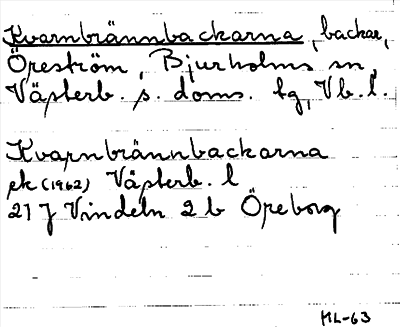 Kvarnbrännbackarna, backar,
Öreström, Bjurholms sn,
Västerb. s. doms. tg, Vb. l.
Kvarnbrännbackarna
ek (1962) Västerb. l
21 J Vindeln 2 b Öreborg
HL-63